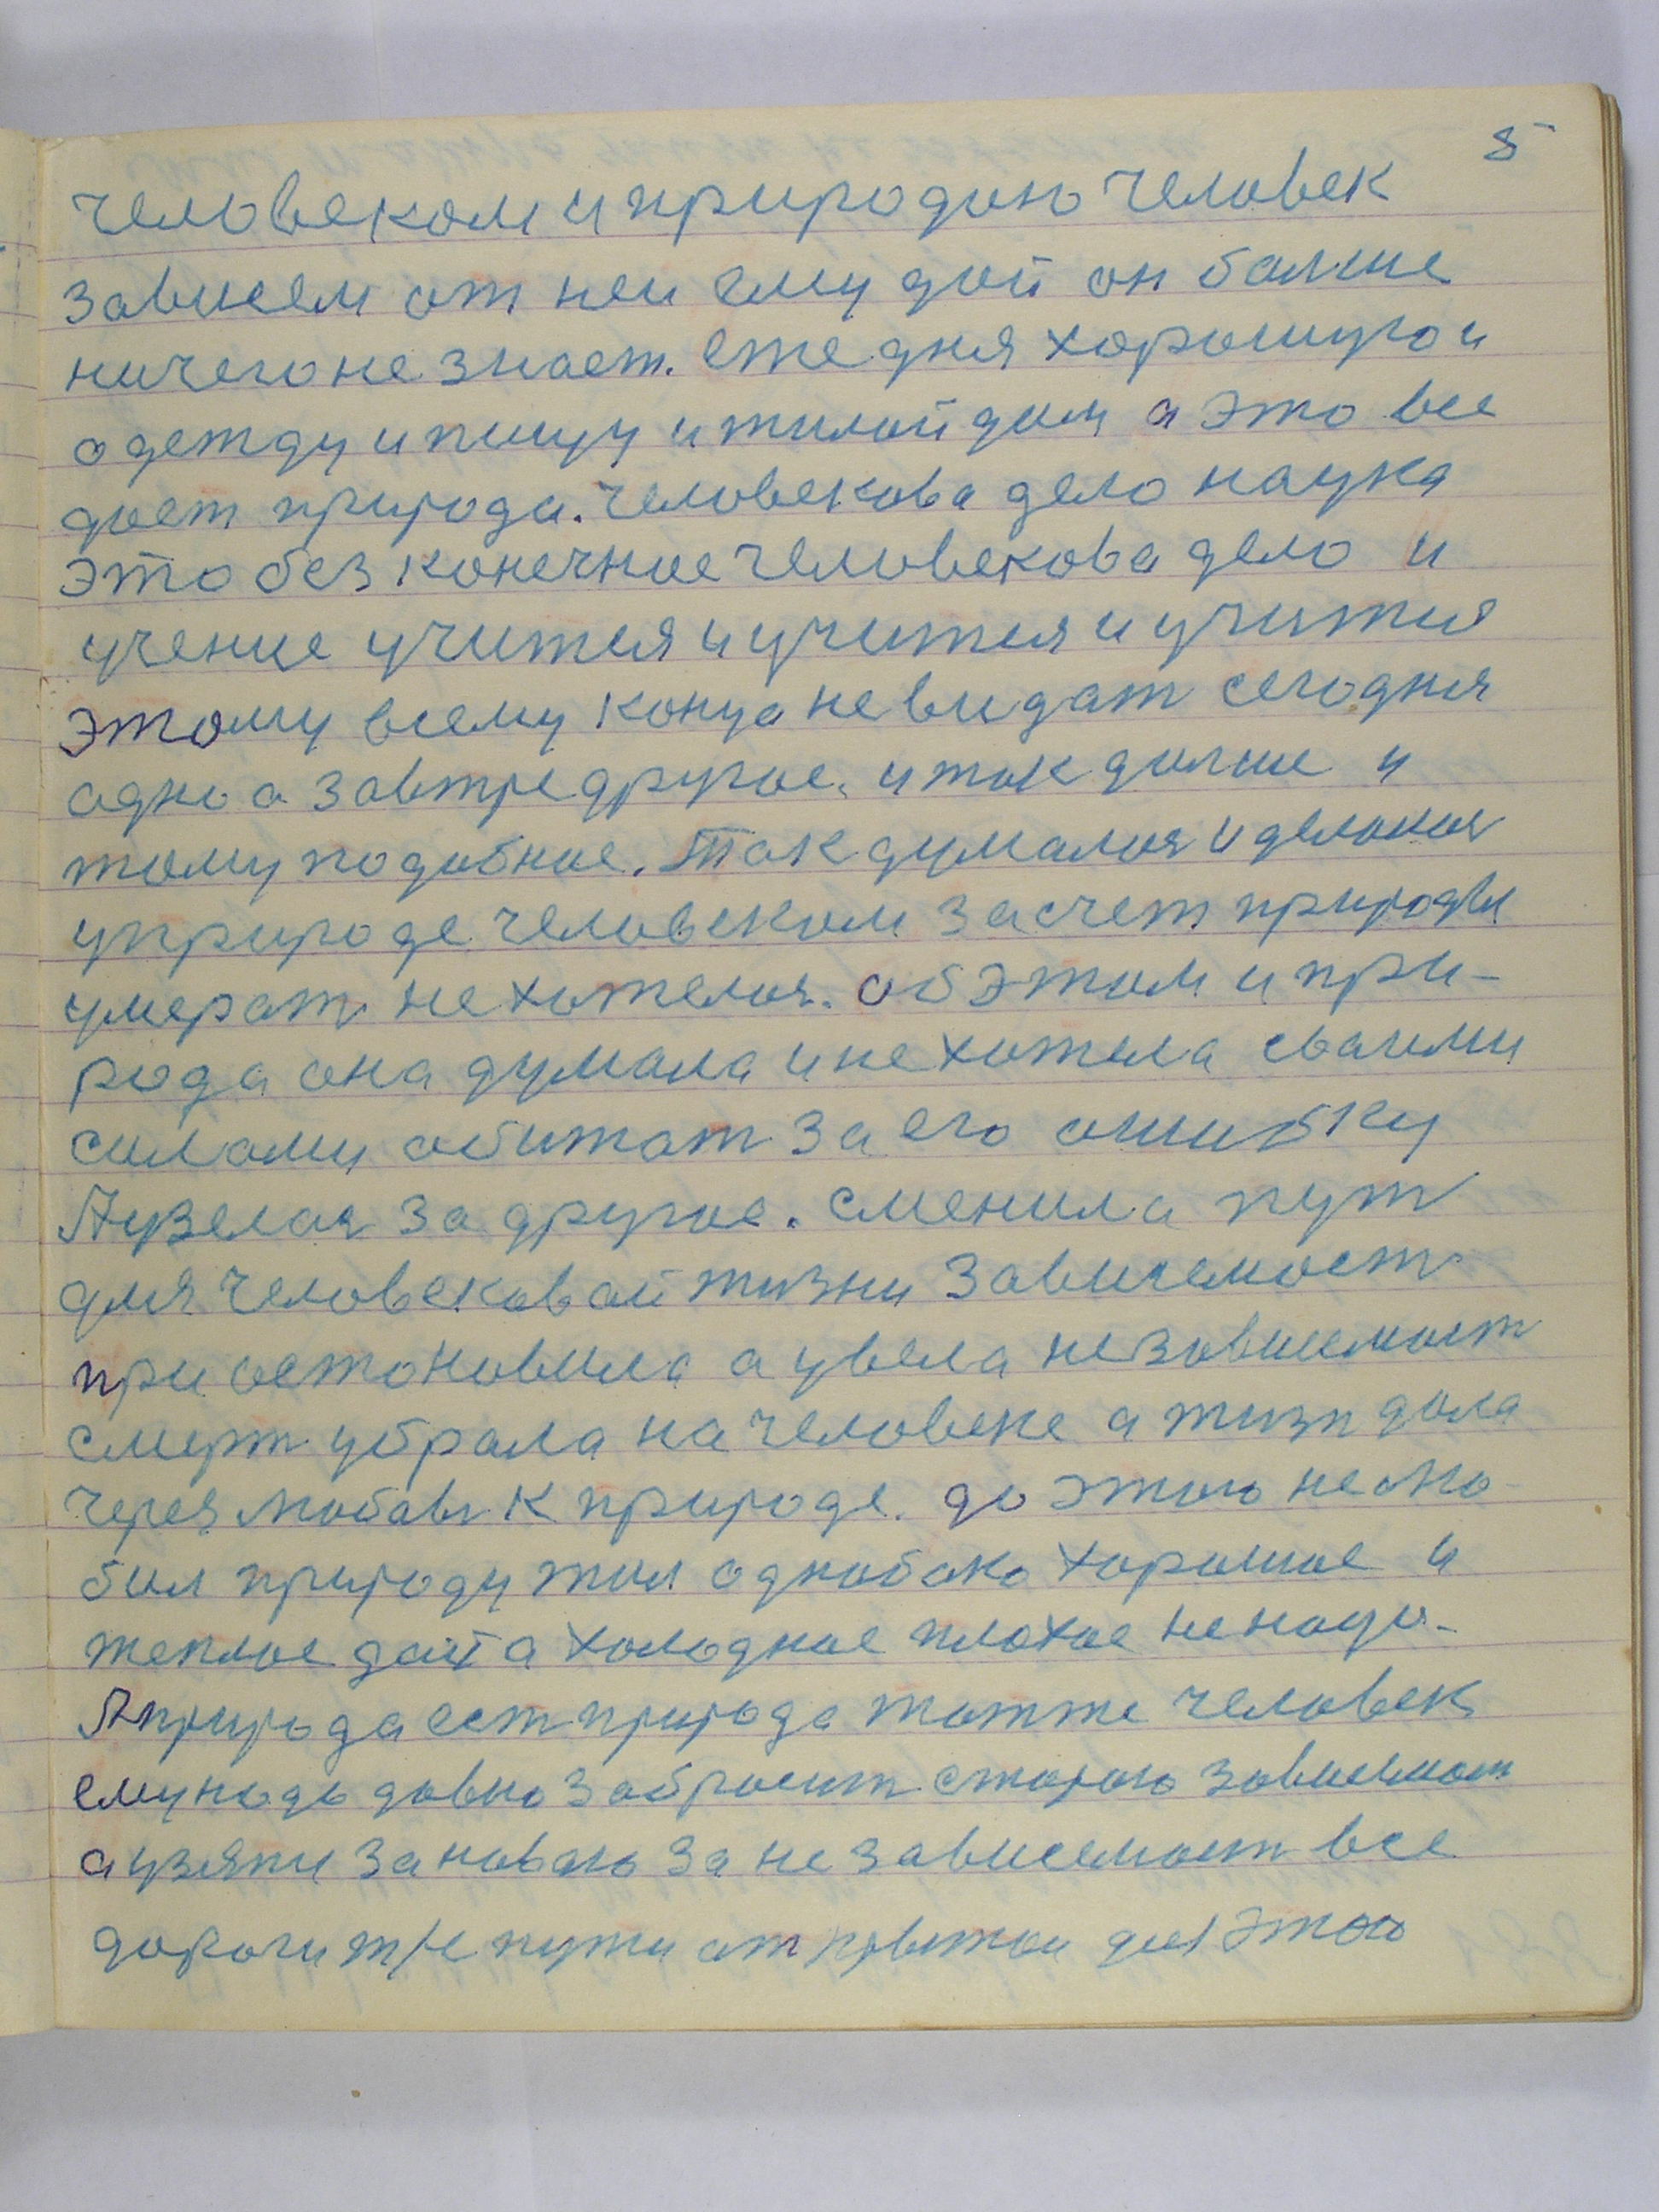 5
человеком и природою человек
зависем от неи ему дой он болше
ничего не знает. еже дня хорошую и
одежду и пищу и жилой дом а это все
дает природа. Человекова дело наука
это без конечное человекова дело и
учение учится и учится и учится
этому всему конца не видат сегодня
адно а завтре другое. и так далше и
тому подобное. Так думалоя и делалоя
у природе человеком за счет природы
умерат не хотелоя. об этом и при-
рода она думала и не хотела сваими
силами обижат за его ошибку
А узелая за другое. сменила пут
для человековай жизни зависемост
приостоновила а увела незовисемост
смерт убрала на человеке а жизн дала
через любовь к природе. до этого не лю-
бил природу жил аднобоко хорошое и
теплое дай а холодное плохое не надо-
А природа ест природа тотже человек
ему надо давно забросит старою зависемост
а узяти за новою за не зависемост все
дороги и т/е пути от